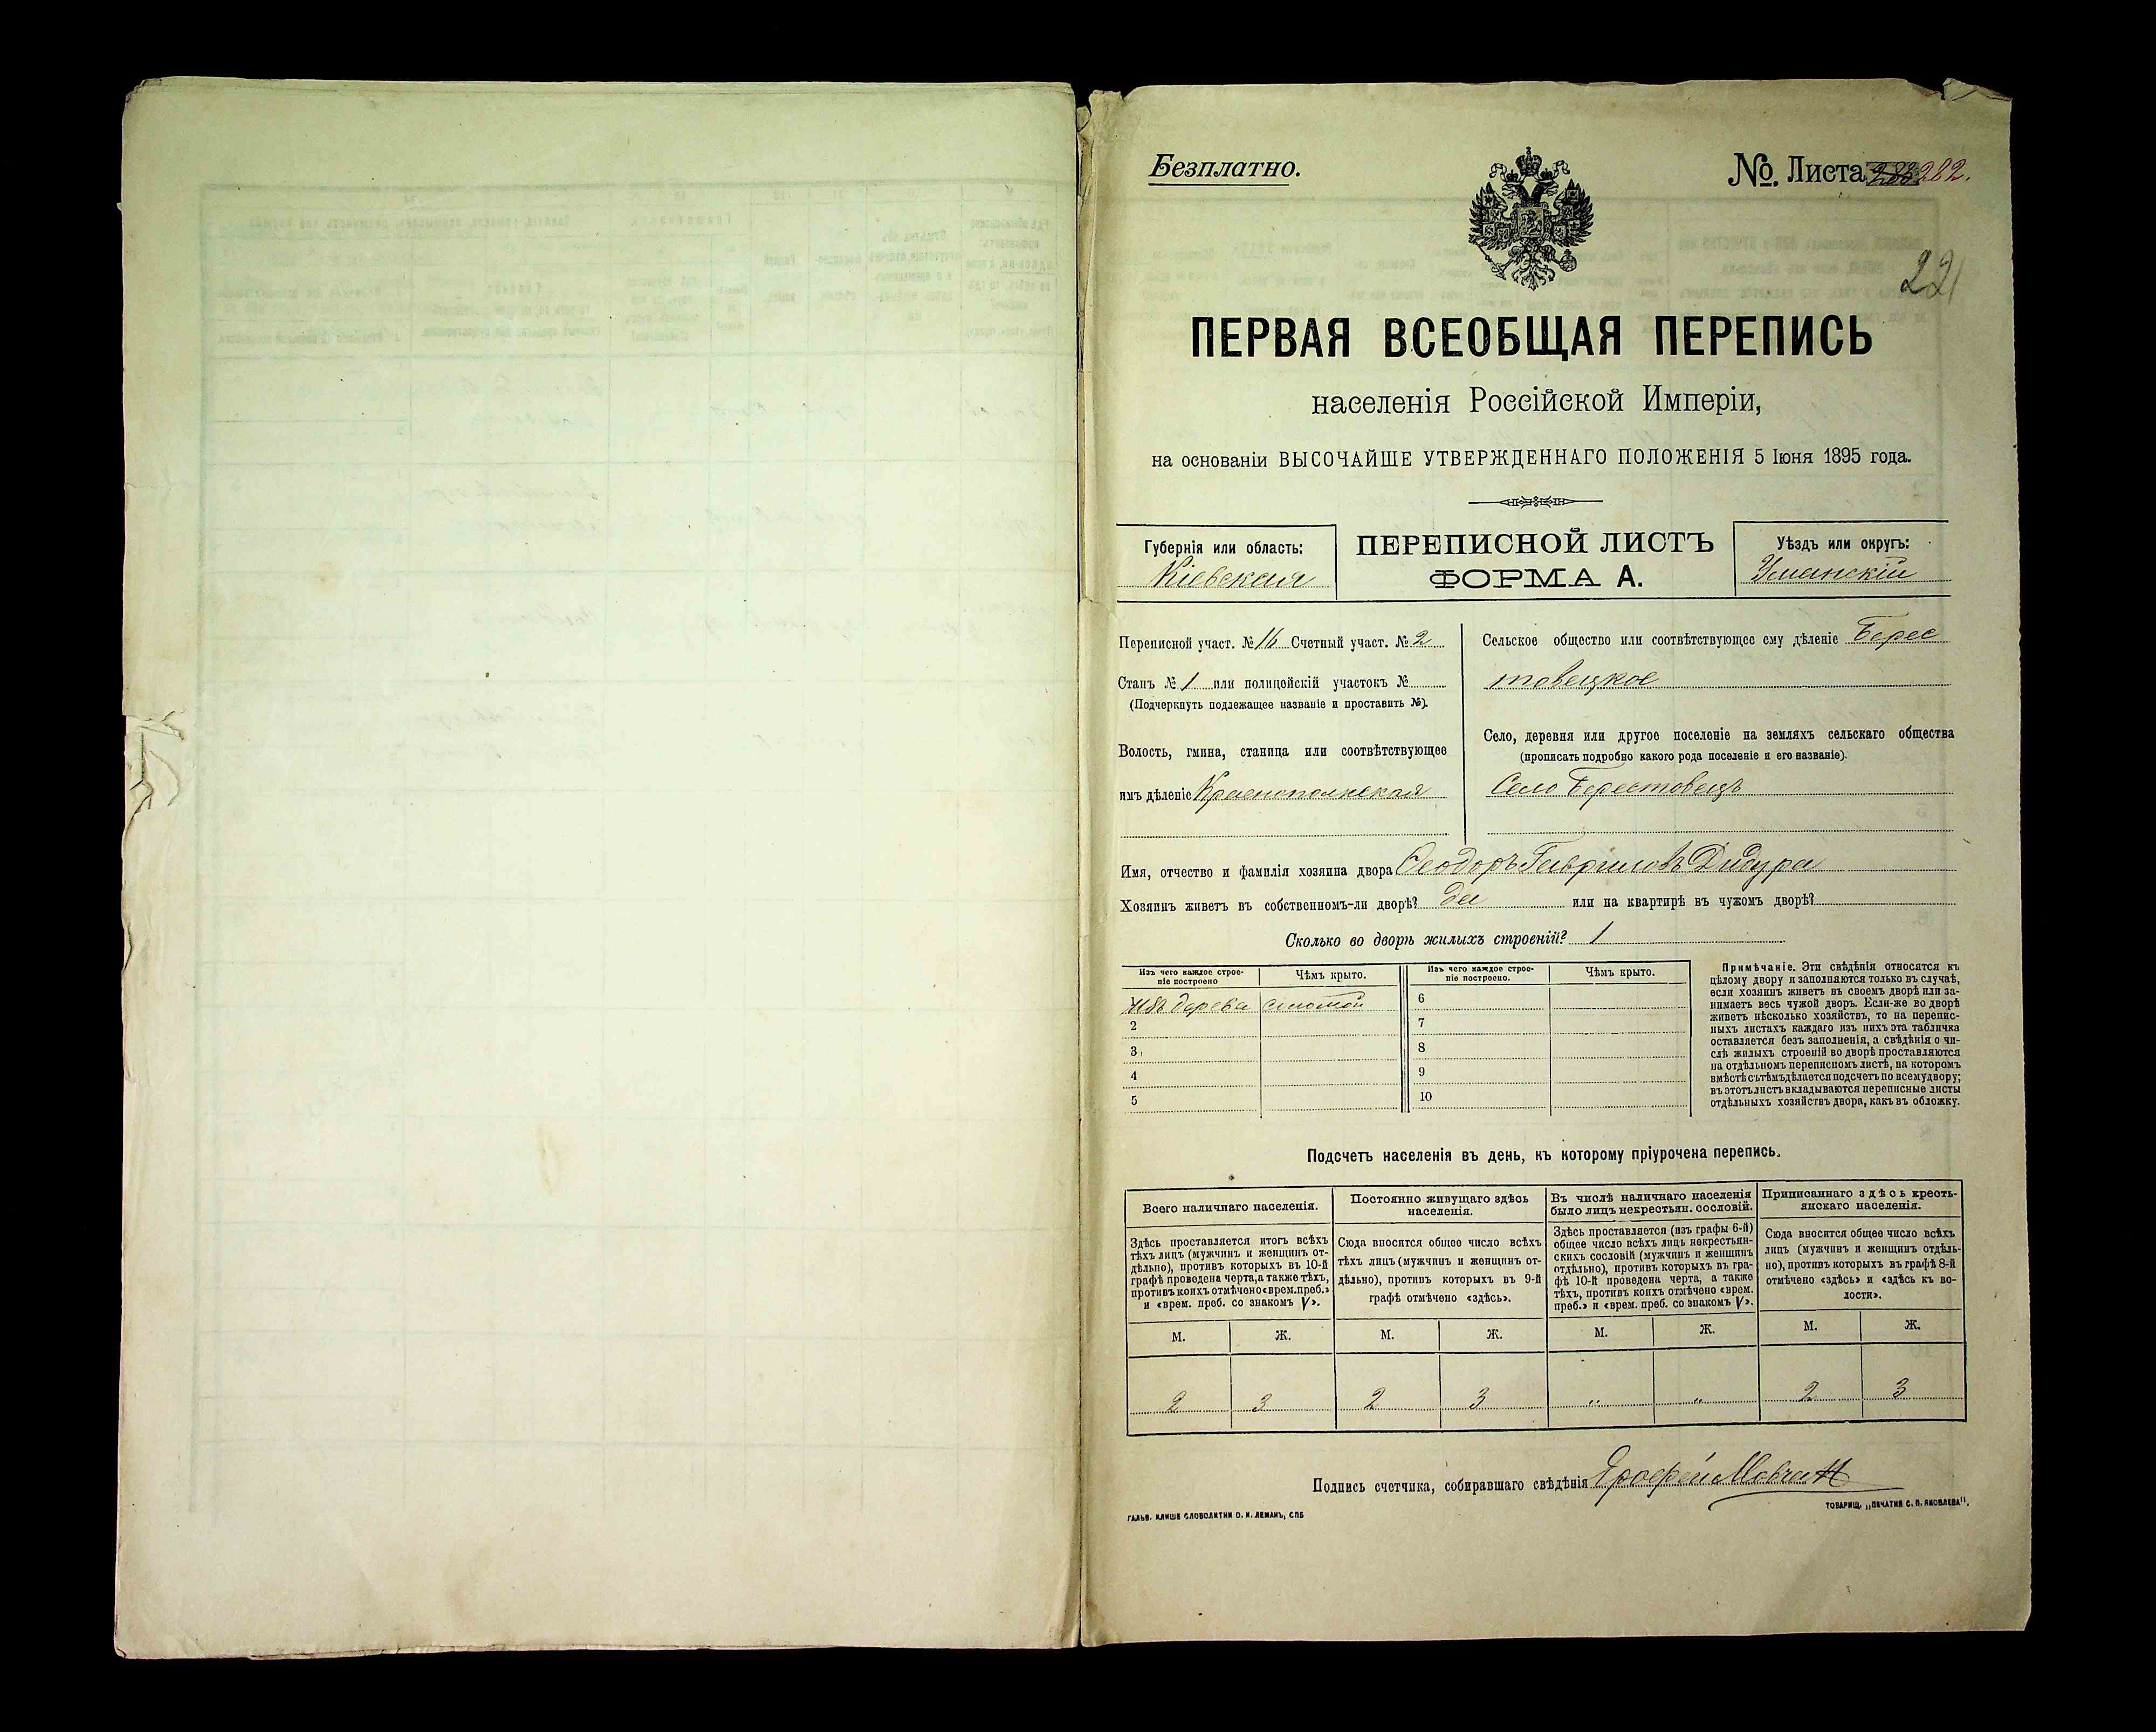 Безплатно.
№. Листа 282.
221
ПЕРВАЯ ВСЕОБЩАЯ ПЕРЕПИСЬ
населенія Россійской Имперіи,
на основаніи ВЫСОЧАЙШЕ УТВЕРЖДЕННАГО ПОЛОЖЕНІЯ 5 Іюня 1895 года.
Губернія или область:
Кіевская
ПЕРЕПИСНОЙ ЛИСТЪ
ФОРМА А.
Уѣздъ или округъ:
Уманскій
Переписной участ. № 16 Счетный участ. № 2
Станъ № 1 или полицейскій участокъ №
(Подчеркнуть подлежащее названіе и проставить №).
Волость, гмина, станица или соотвѣтствующее
имъ дѣленіе Краснополкская
Сельское общество или соотвѣтствующее ему дѣленіе Берес
товецкое
Село, деревня или другое поселеніе на земляхъ сельскаго общества
(прописать подробно какого рода поселеніе и его названіе).
Село Берестовецъ
Имя, отчество и фамилія хозяина двора Ѳеодоръ Гавриловъ Дидура
Хозяинъ живетъ въ собственномъ-ли дворѣ? да или на квартирѣ въ чужомъ дворѣ?
Сколько во дворѣ жилыхъ строеній? 1
Изъ чего каждое строе-
ніе построено
Чѣмъ крыто.
Изъ чего каждое строе-
ніе построено.
Чѣмъ крыто.
Изъ дерева соломой
2
3
4
5
6
7
8
9
10
Примѣчаніе. Эти свѣдѣнія относятся къ
цѣлому двору и заполняются только въ случаѣ,
если хозяинъ живетъ въ своемъ дворѣ или за-
нимаетъ весь чужой дворъ. Если-же во дворѣ
живетъ нѣсколько хозяйствъ, то на перепис-
ныхъ листахъ каждаго изъ нихъ эта табличка
оставляется безъ заполненія, а свѣдѣнія о чи-
слѣ жилыхъ строеній во дворѣ проставляются
на отдѣльномъ переписномъ листѣ, на которомъ
вмѣстѣ съ тѣмъ дѣлается подсчетъ по всему двору;
въ этотъ листъ вкладываются переписные листы
отдѣльныхъ хозяйствъ двора, какъ въ обложку.
Подсчетъ населенія въ день, къ которому пріурочена перепись.
Всего наличнаго населенія.
Здѣсь проставляется итогъ всѣхъ
тѣхъ лицъ (мужчинъ и женщинъ от-
дѣльно), противъ которыхъ въ 10-й
графѣ проведена черта, а также тѣхъ,
противъ коихъ отмѣчено «врем. преб.»
и «врем. преб. со знакомъ V».
Постоянно живущаго здѣсь
населенія.
Сюда вносится общее число всѣхъ
тѣхъ лицъ (мужчинъ и женщинъ от-
дѣльно), противъ которыхъ въ 9-й
графѣ отмѣчено «здѣсь».
Въ числѣ наличнаго населенія
было лицъ некрестьян. сословій.
Здѣсь проставляется (изъ графы 6-й)
общее число всѣхъ лицъ некрестьян-
скихъ сословій (мужчинъ и женщинъ
отдѣльно), противъ которыхъ въ гра-
фѣ 10-й проведена черта, а также
тѣхъ, противъ коихъ отмѣчено «врем.
преб.» и «врем. преб. со знакомъ V».
Приписаннаго здѣсь кресть-
янскаго населенія.
Сюда вносится общее число всѣхъ
лицъ (мужчинъ и женщинъ отдѣль-
но), противъ которыхъ въ графѣ 8-й
отмѣчено «здѣсь» и «здѣсь къ во-
лости».
М. Ж. М. Ж. М. Ж. М. Ж.
2 3 2 3 „ „ 2 3
Подпись счетчика, собиравшаго свѣдѣнія Ерофей Мовчан
ГАЛЬВ. КЛИШЕ СЛОВОЛИТНИ О. И. ЛЕМАНЪ, СПБ
ТОВАРИЩ. „ПЕЧАТНЯ С. П. ЯКОВЛЕВА".